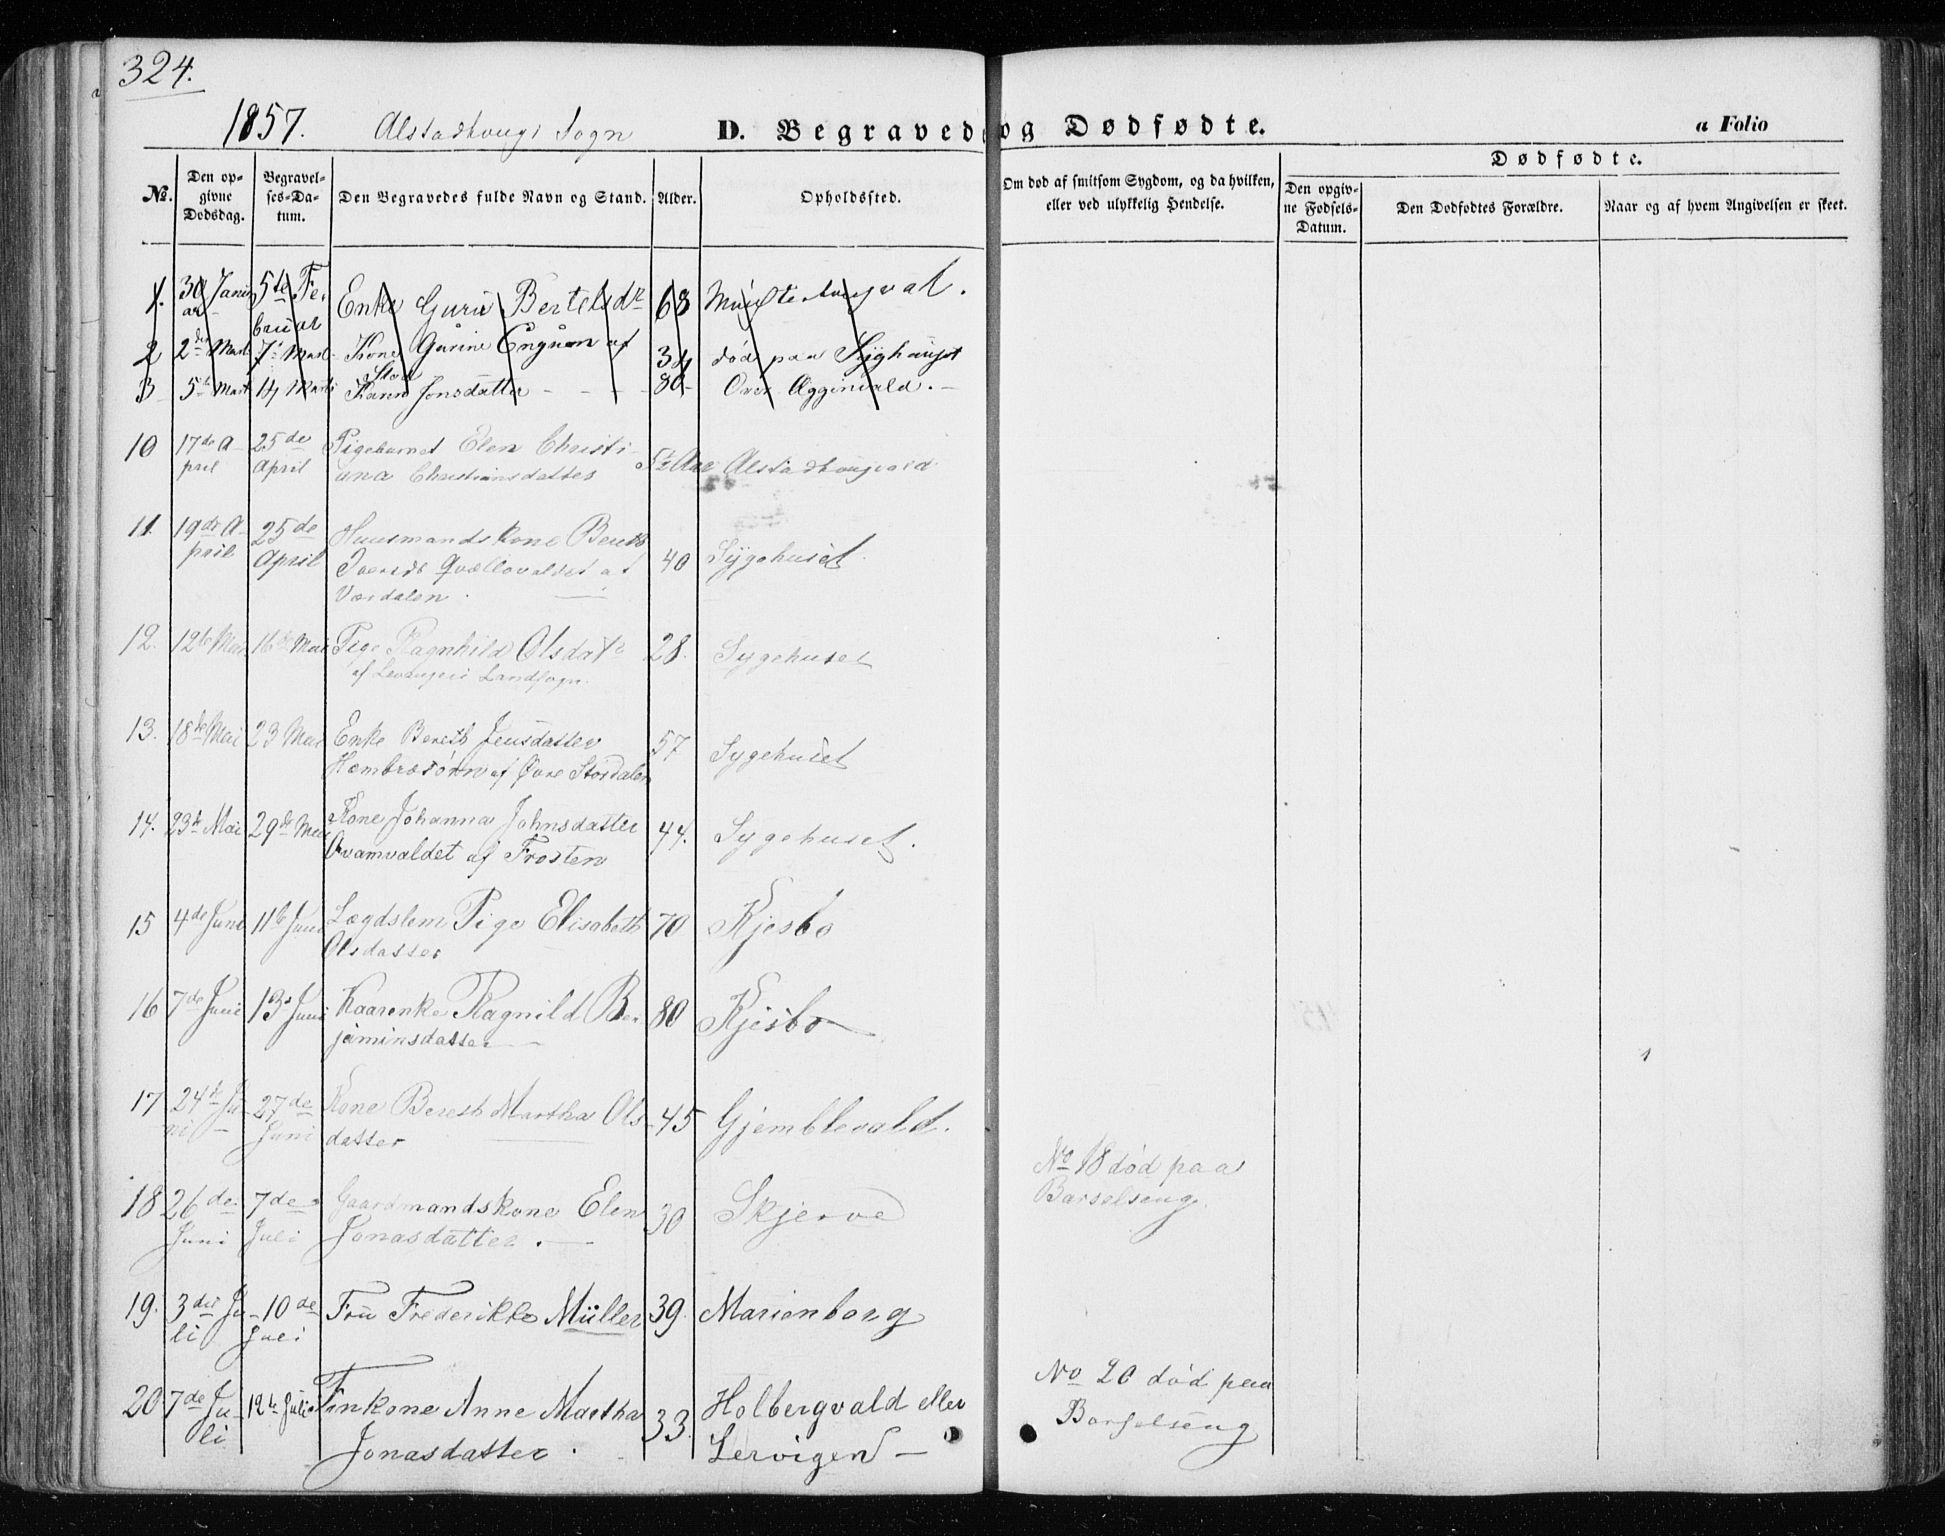 324.
1857. Alstadhougs Sogn D. Begravede og Dødfødte. a Folio
Dødfødte.
No. Den opgivne Dødsdag. Begravelses-Datum. Den Begravedes fulde Navn og Stand. Alder. Opholdssted. Om død af smitsom Sygdom, og da hvilken, eller ved ulykkelig Hendelse. Den opgivne Fødsels-Datum. Den Dødfødtes Forældre. Naar og af hvem Angivelsen er skeet.
1. 30 Januar 5te Februar Enke Guru Bertelsdtr 68
2 2den Marts 7de Marts Kone Gurine af 34 død paa Syghuset
3 5te Marts 14 Marts Karen Jonsdatter - - - 80 Over
10 17de A- 25de Pigebarnet Elen Christi-
pril April ana Christiansdatter Aar Alstadhougvald
11. 19de A- 25de Huusmandskone Bereth
pril April 40 Sygehuset
Værdalen.
12. 12te Mai 16de Mai Pige Ragnhild Olsdatr 28. Sygehuset
af Levangers Landsogn.
13. 18de Mai 23 Mai Enke Bereth Jensdatter 57 Sygehuset
af Øvre Stordalen
14. 23de Mai 29de Mai Kone Johanna Johnsdatter 44. Sygehuset.
Qvamvaldet af Frosten
15 4de Juni 11te Juni Lægdslem Pige Elisabeth 70 Kjesbo
Olsdatter
16 7de Juni 13de Juni Kaarenke Ragnild Ben- 80 Kjesbo
jaminsdatter
17 24de Ju- 27de Kone Bereth Martha Ols- 45 Gjemblevald.
ni Juni datter
18 26de 7de Gaardmandskone Elen 30 Skjerve No 18 død paa
Juni Juli Jonasdatter. Barselseng.
19. 3die Ju- 10de Fru Frederikke Müller 39. Marienborg
li Juli
20 7de Ju- 12te Juli Finkone Anne Martha 33. Holbergvald eller No 20 død paa
li Jonasdatter. Lervigen Barselseng